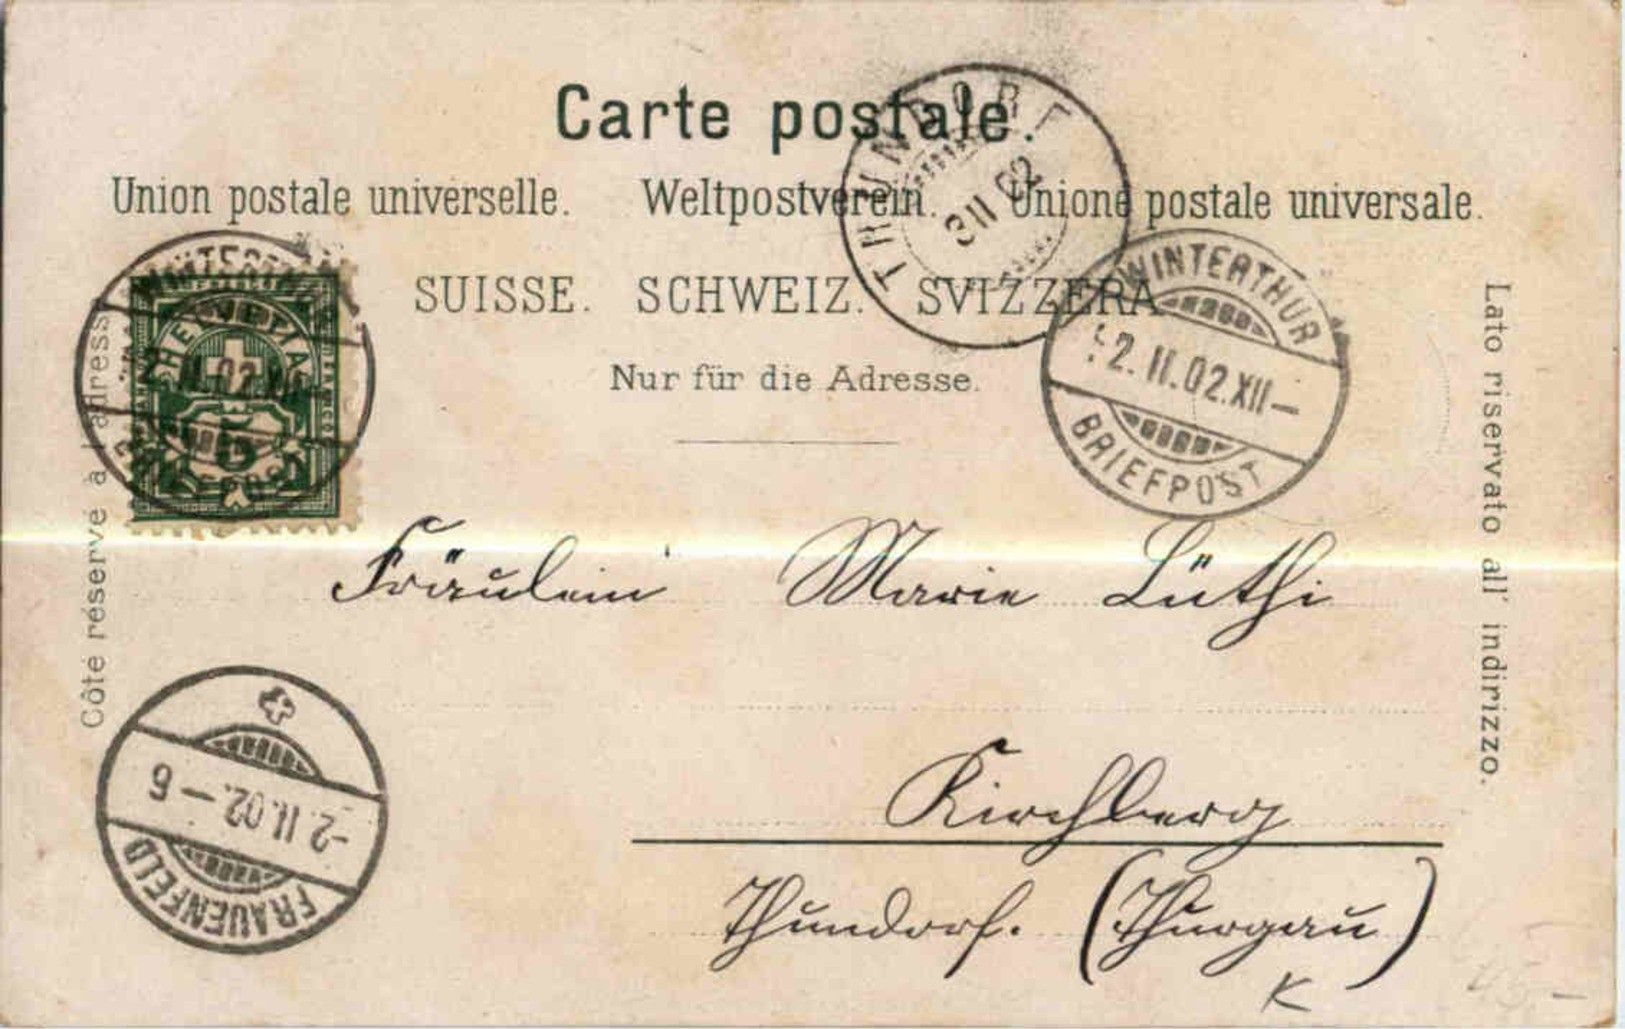 Carte postale.
Union postale universelle. Weltpostverein. Unione postale universale.
SUISSE. SCHWEIZ. SVIZZERA
Nur für die Adresse.
Côté réservé à l'adresse
Lato riservato all' indirizzo.
THUNDORF
3 II 02
WINTERTHUR
2.II.02.XII–
BRIEFPOST
WINTERTHUR
2.II.02
BRIEFPOST
HELVETIA
5
FRANCO
Fräulein Marie Lüthi
Kirchberg
Thundorf. (Thurgau)
K
45.–
-2.II.02.–6
FRAUENFELD